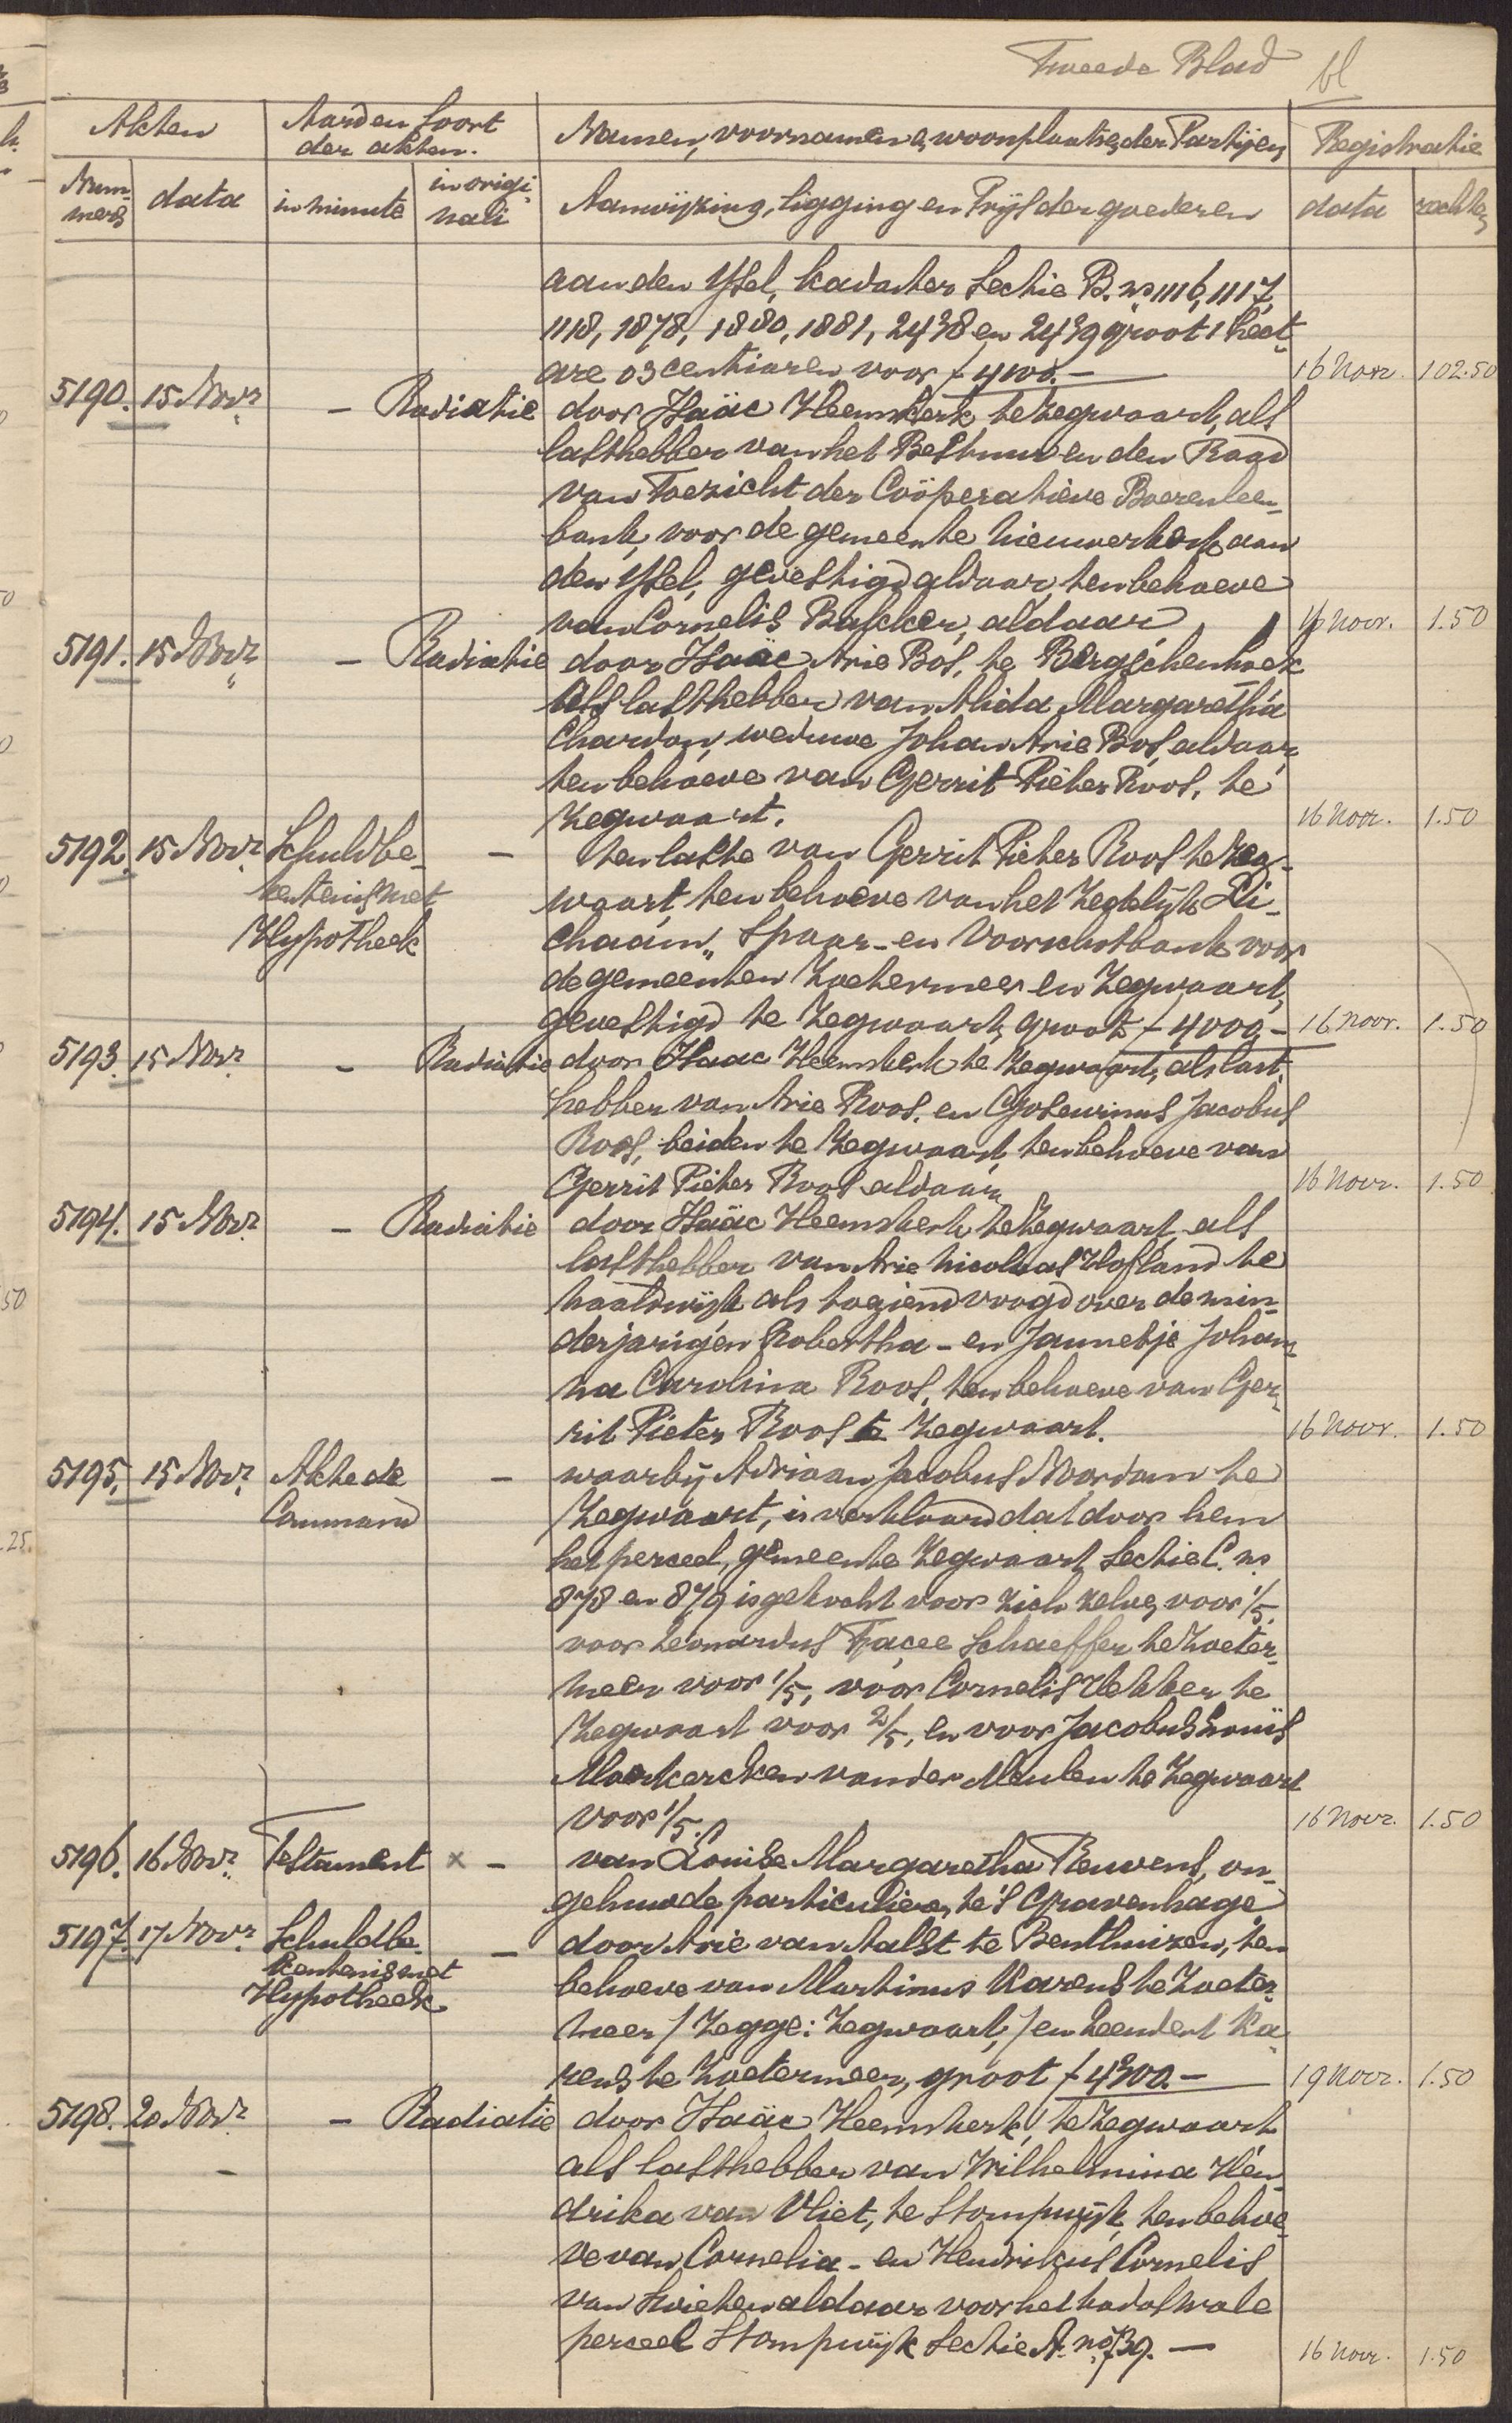 Tweede Blad bl
Akten Aard en Soort der akten. Namen, voornamen & woonplaatsen der Partijen Registratie
Nummers data in minute in originali Aanwijzing, ligging en Prijs der goederen data rechten
aan den IJsel, kadaster Sectie B. no 1116, 1117,
1118, 1878, 1880, 1881, 2438 en 2439 groot 1 hect-
are 03 centiaren voor f 4100.- 16 Novr. 102.50
5190. 15 Novr. - Radiatie door Isaäc Heemskerk te Zegwaart, als
lasthebber van het Bestuur en den Raad
van Toezicht der Coöperatieve Boerenleen-
bank, voor de gemeente Nieuwerkerk aan
den IJsel, gevestigd aldaar, ten behoeve
van Cornelis Bascker, aldaar 16 Novr. 1.50
5191. 15 Novr. - Radiatie door Isaäc Arie Bos, te Bergschenhoek
als lasthebber van Alida Margaretha
Chardon, weduwe Johan Arie Bos, aldaar,
ten behoeve van Gerrit Pieter Roos, te
Zegwaart. 16 Novr. 1.50
5192. 15 Novr. Schuldbe- - ten laste van Gerrit Pieter Roos te Zeg-
kentenis met waart, ten behoeve van het Zedelijk Li-
Hypotheek chaam „Spaar- en Voorschotbank voor
de gemeenten Zoetermeer en Zegwaart,
gevestigd te Zegwaart, groot f 4000.- 16 Novr. 1.50
5193. 15 Novr. - Radiatie door Isaac Heemskerk te Zegwaart, als last-
hebber van Arie Roos, en Gosewinus Jacobus
Roos, beiden te Zegwaart, ten behoeve van
Gerrit Pieter Roos aldaar, 16 Novr. 1.50
5194. 15 Novr. - Radiatie door Isaäc Heemskerk te Zegwaart, als
lasthebber van Arie Nicolaas Hofland te
Naaldwijk als toeziend voogd over de min-
derjarigen Robertha- en Jannetje Johan-
na Carolina Roos, ten behoeve van Ger-
rit Pieter Roos te Zegwaart. 16 Novr. 1.50
5195. 15 Novr. Akte de - waarbij Adriaan Jacobus Noordam te
Command Zegwaart, is verklaard dat door hem
het perceel, gemeente Zegwaart, Sectie C. no
878 en 879 is gekocht voor zich zelve, voor 1/5.
voor Leonardus Schaeffer te Zoeter-
meer voor 1/5, voor Cornelis Hekker te
Zegwaart voor 2/5, en voor Jacobus Louis
Moerkercken van der Meulen te Zegwaart
voor 1/5. 16 Novr. 1.50
5196. 16 Novr. Testament x - van Louise Margaretha Reuvens, on-
gehuwde particuliere, te 's Gravenhage
5197. 17 Novr. Schuldbe- - door Arie van Aalst te Benthuizen, ten
kentenis met behoeve van Martinus Karens te Zoeter-
Hypotheek meer / Zegge: Zegwaart, / en Leendert Ka-
rens te Zoetermeer, groot f 4300.- 19 Novr. 1.50
5198. 20 Novr. - Radiatie door Isaäc Heemskerk, te Zegwaart
als lasthebber van Wilhelmina Hen-
drika van Vliet, te Stompwijk, ten behoe-
ve van Cornelia- en Hendrikus Cornelis
van aldaar voor het kadastrale
perceel Stompwijk Sectie A. no 739. - 16 Novr. 1.50